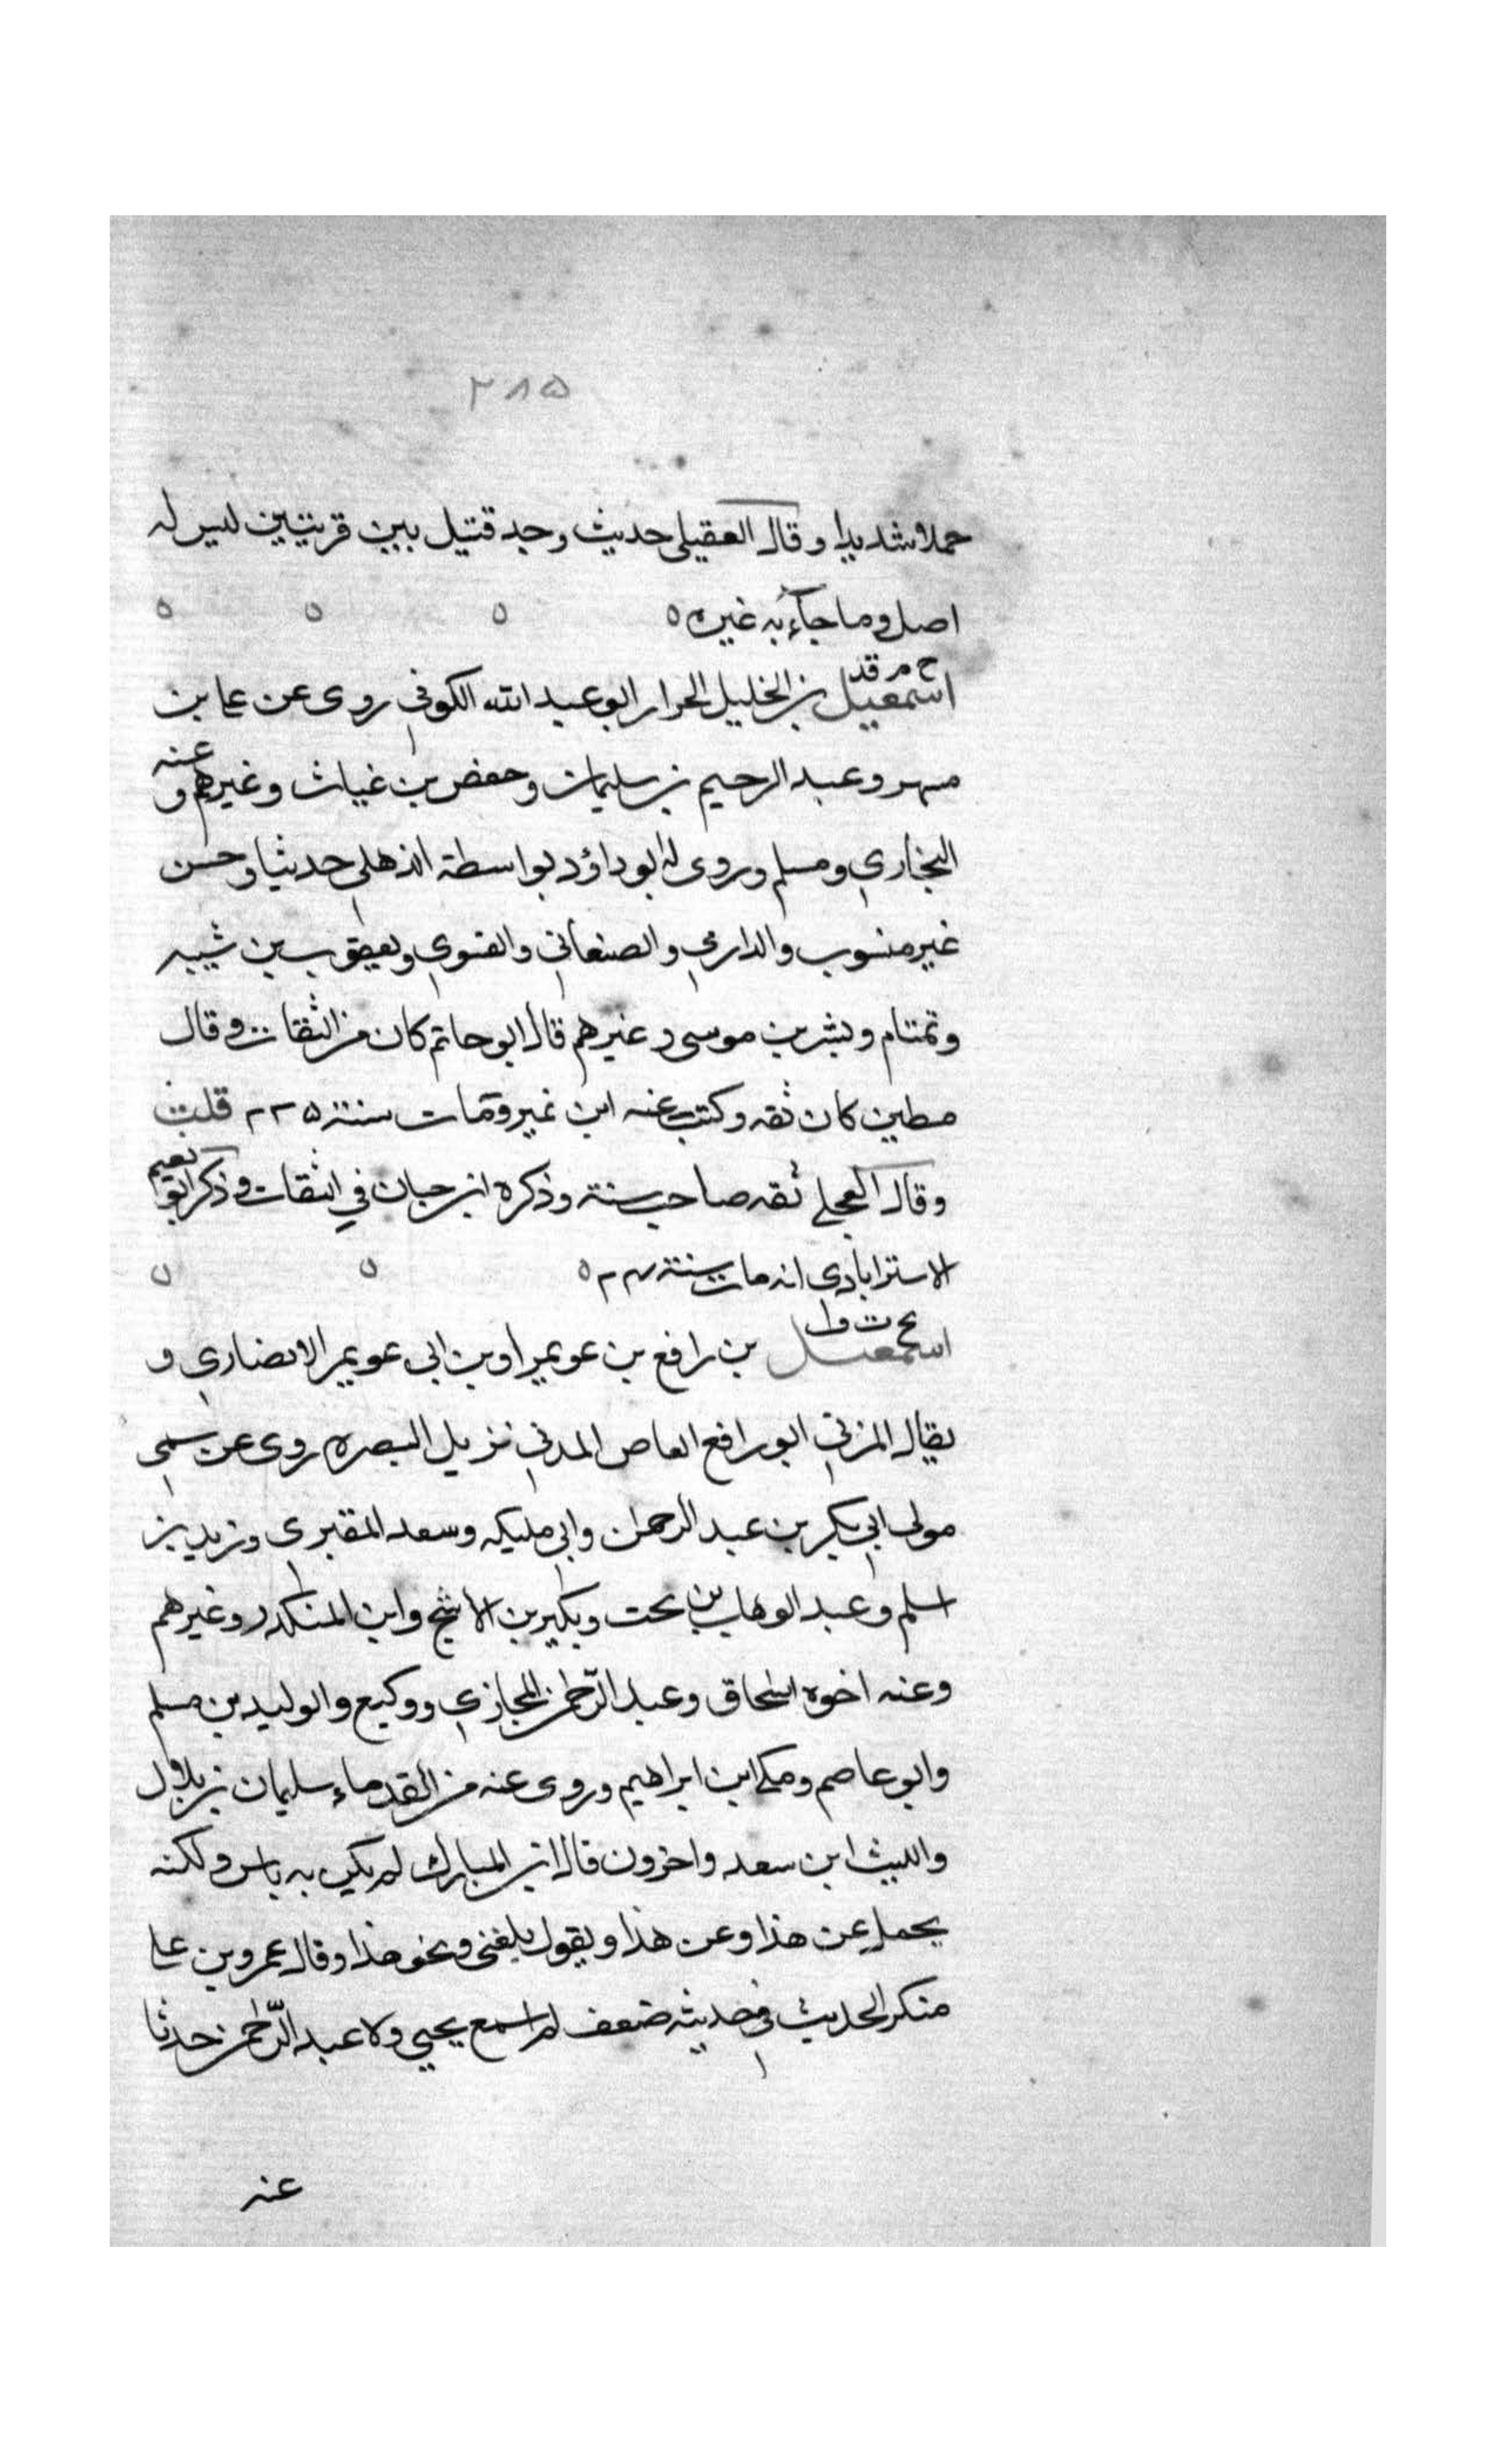 ٢٨٥
حملا شديدا وقال العقيلي حديث وجد قتيل بين قريتين ليس له
اصل وما جاء به غيره ٥ ٥ ٥ ٥
خ م قد
اسمعيل بن الخليل الحرار ابو عبد الله الكوفي روى عن علي بن
مسهر وعبد الرحيم بن سليمان وحفص بن غياث وغيرهم وعنه
البخاري ومسلم وروى له ابو داؤد بواسطة الذهلي حديثا وحسن
غير منسوب والدارمي والصنعاني والفسوي ويعقوب بن شيبه
وتمتام وبشر بن موسى وغيرهم قال ابو حاتم كان من الثقات وقال
مطين كان ثقه وكتب عنه ابن نمير ومات سنة ٢٢٥ قلت
وقال العجلي ثقه صاحب سنة وذكره ابن حبان في الثقات وذكر ابو نعيم
الاسترابادي انه مات سنة ٥ ٥ ٥
بخ ت ق
اسمعيل بن رافع بن عويمر او بن ابي عويمر الانصاري و
يقال المزني ابو رافع العاص المدني نزيل البصره روى عن سمى
مولى ابي بكر بن عبد الرحمن وابي مليكه وسعد المقبرى وزيد بن
اسلم وعبد الوهاب بن بحت وبكير بن الاشج وابن المنكدر وغيرهم
وعنه اخوه اسحاق وعبد الرحمن المحازي ووكيع والوليد بن مسلم
وابو عاصم ومكي ابن ابراهيم وروى عنه من القدماء سليمان بن بلال
والليث ابن سعد واخرون قال ابن المبارك لم يكن به باس ولكنه
يحمل عن هذا وعن هذا ويقول بلغنى ونحو هذا وقال عمرو بن علي
منكر الحديث في حديثه ضعف لم اسمع يحيي ولا عبد الرحمن حدثا
عنه